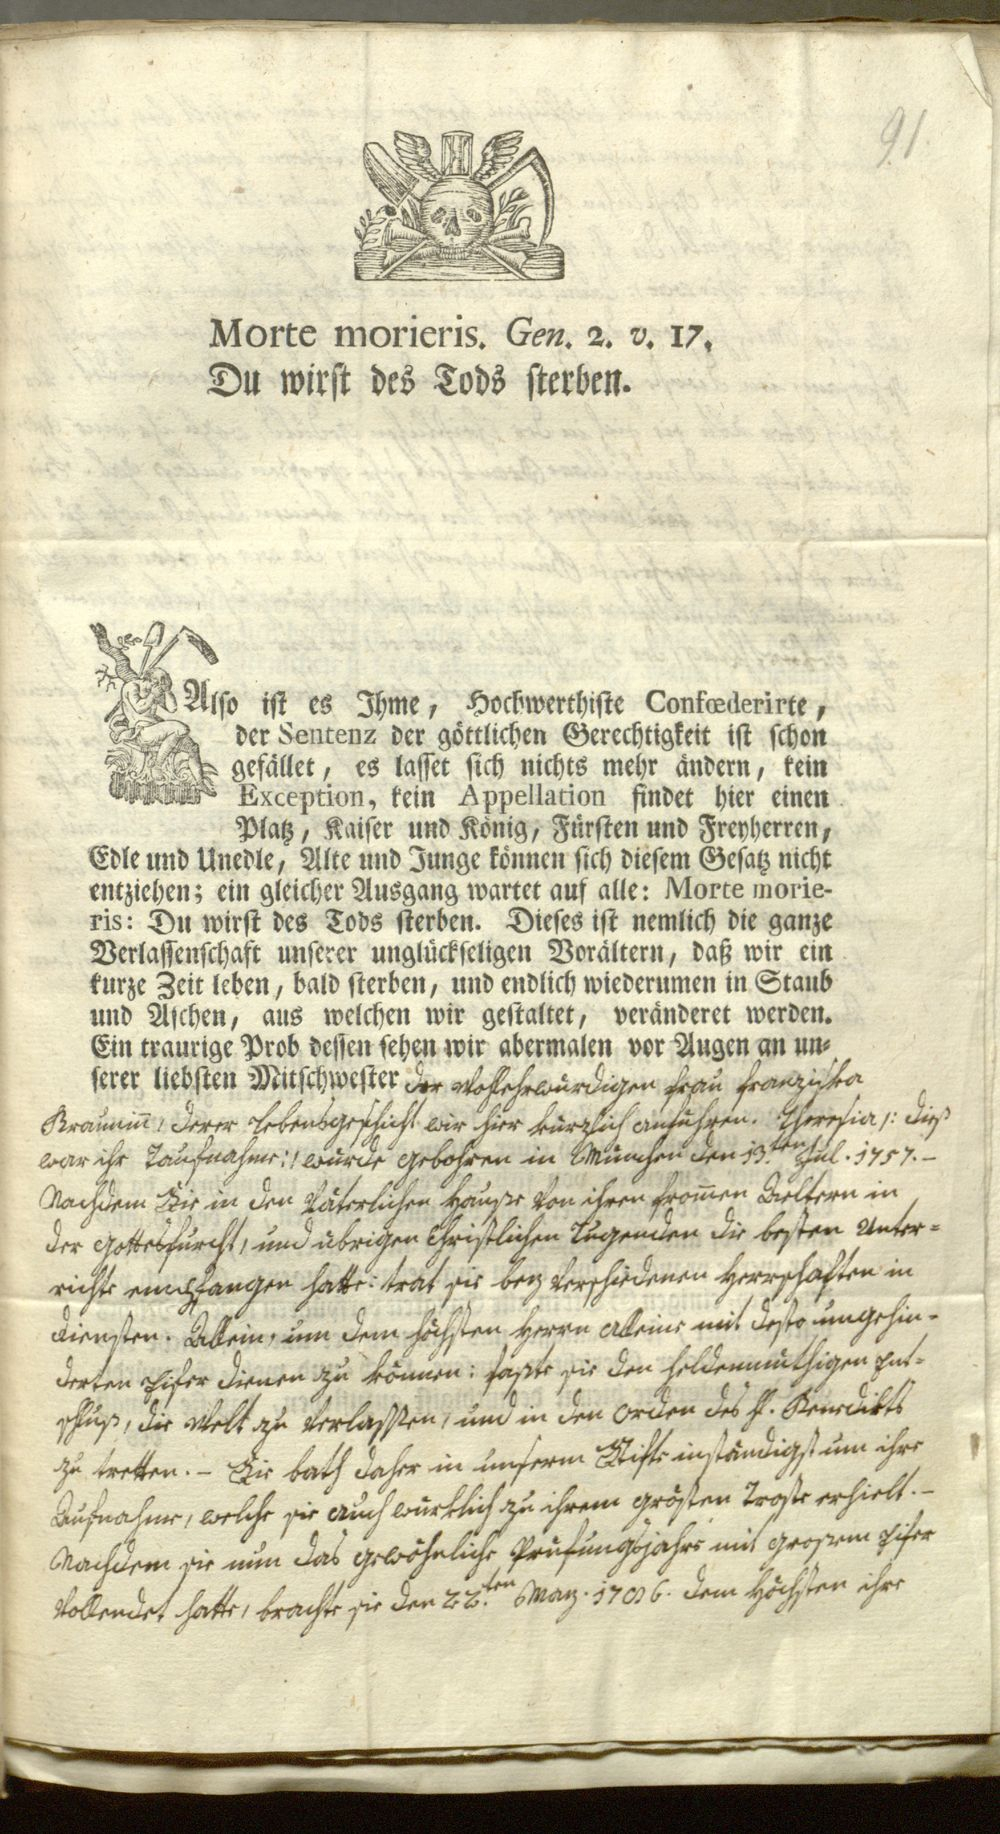 91.
Morte morieris. Gen. 2. v. 17.
Du wirst des Tods sterben.
Also ist es Ihme, Hochwerthiste Confœderirte,
der Sentenz der göttlichen Gerechtigkeit ist schon
gefället, es lasset sich nichts mehr ändern, kein
Exception, kein Appellation findet hier einen
Platz, Kaiser und König, Fürsten und Freyherren,
Edle und Unedle, Alte und Junge können sich diesem Gesatz nicht
entziehen; ein gleicher Ausgang wartet auf alle: Morte morie-
ris: Du wirst des Tods sterben. Dieses ist nemlich die ganze
Verlassenschaft unserer unglückseligen Vorältern, daß wir ein
kurze Zeit leben, bald sterben, und endlich wiederumen in Staub
und Aschen, aus welchen wir gestaltet, veränderet werden.
Ein traurige Prob dessen sehen wir abermalen vor Augen an un-
serer liebsten Mitschwester der Wohlehrwürdigen Frau Franziska
derer Lebensgeschicht wir hier kürzlich anführen. Theresia /: dieß
war ihr Taufnahme :/ wurde gebohren in München den 13.ten Jul. 1757. –
Nachdem Sie in den Väterlichen Hauße von ihren from̅en Aeltern in
der Gottesfurcht, und übrigen Christlichen Tugenden die besten Unter-
richte empfangen hatte: trat sie bey verschiedenen Herrschaften in
diensten. Allein, um dem höchsten Herrn alleine mit desto ungehin-
derten Eifer dienen zu können: faßte sie den heldenmüthigen Ent-
schluß, die Welt zu verlassen, und in den Orden des H. Benedikts
zu tretten. – Sie bath daher in unserm Stifte inständigst um ihre
Aufnahme, welche sie auch würklich zu ihrem grösten Troste erhielt. –
Nachdem sie nun das gewöhnliche Prüfungsjahre mit grosem Eifer
vollendet hatte, brachte sie den 22.ten März. dem Höchsten ihre